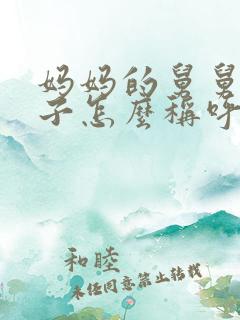 妈妈的舅舅
子怎麼稱呼
和睦
未经同意禁止转载